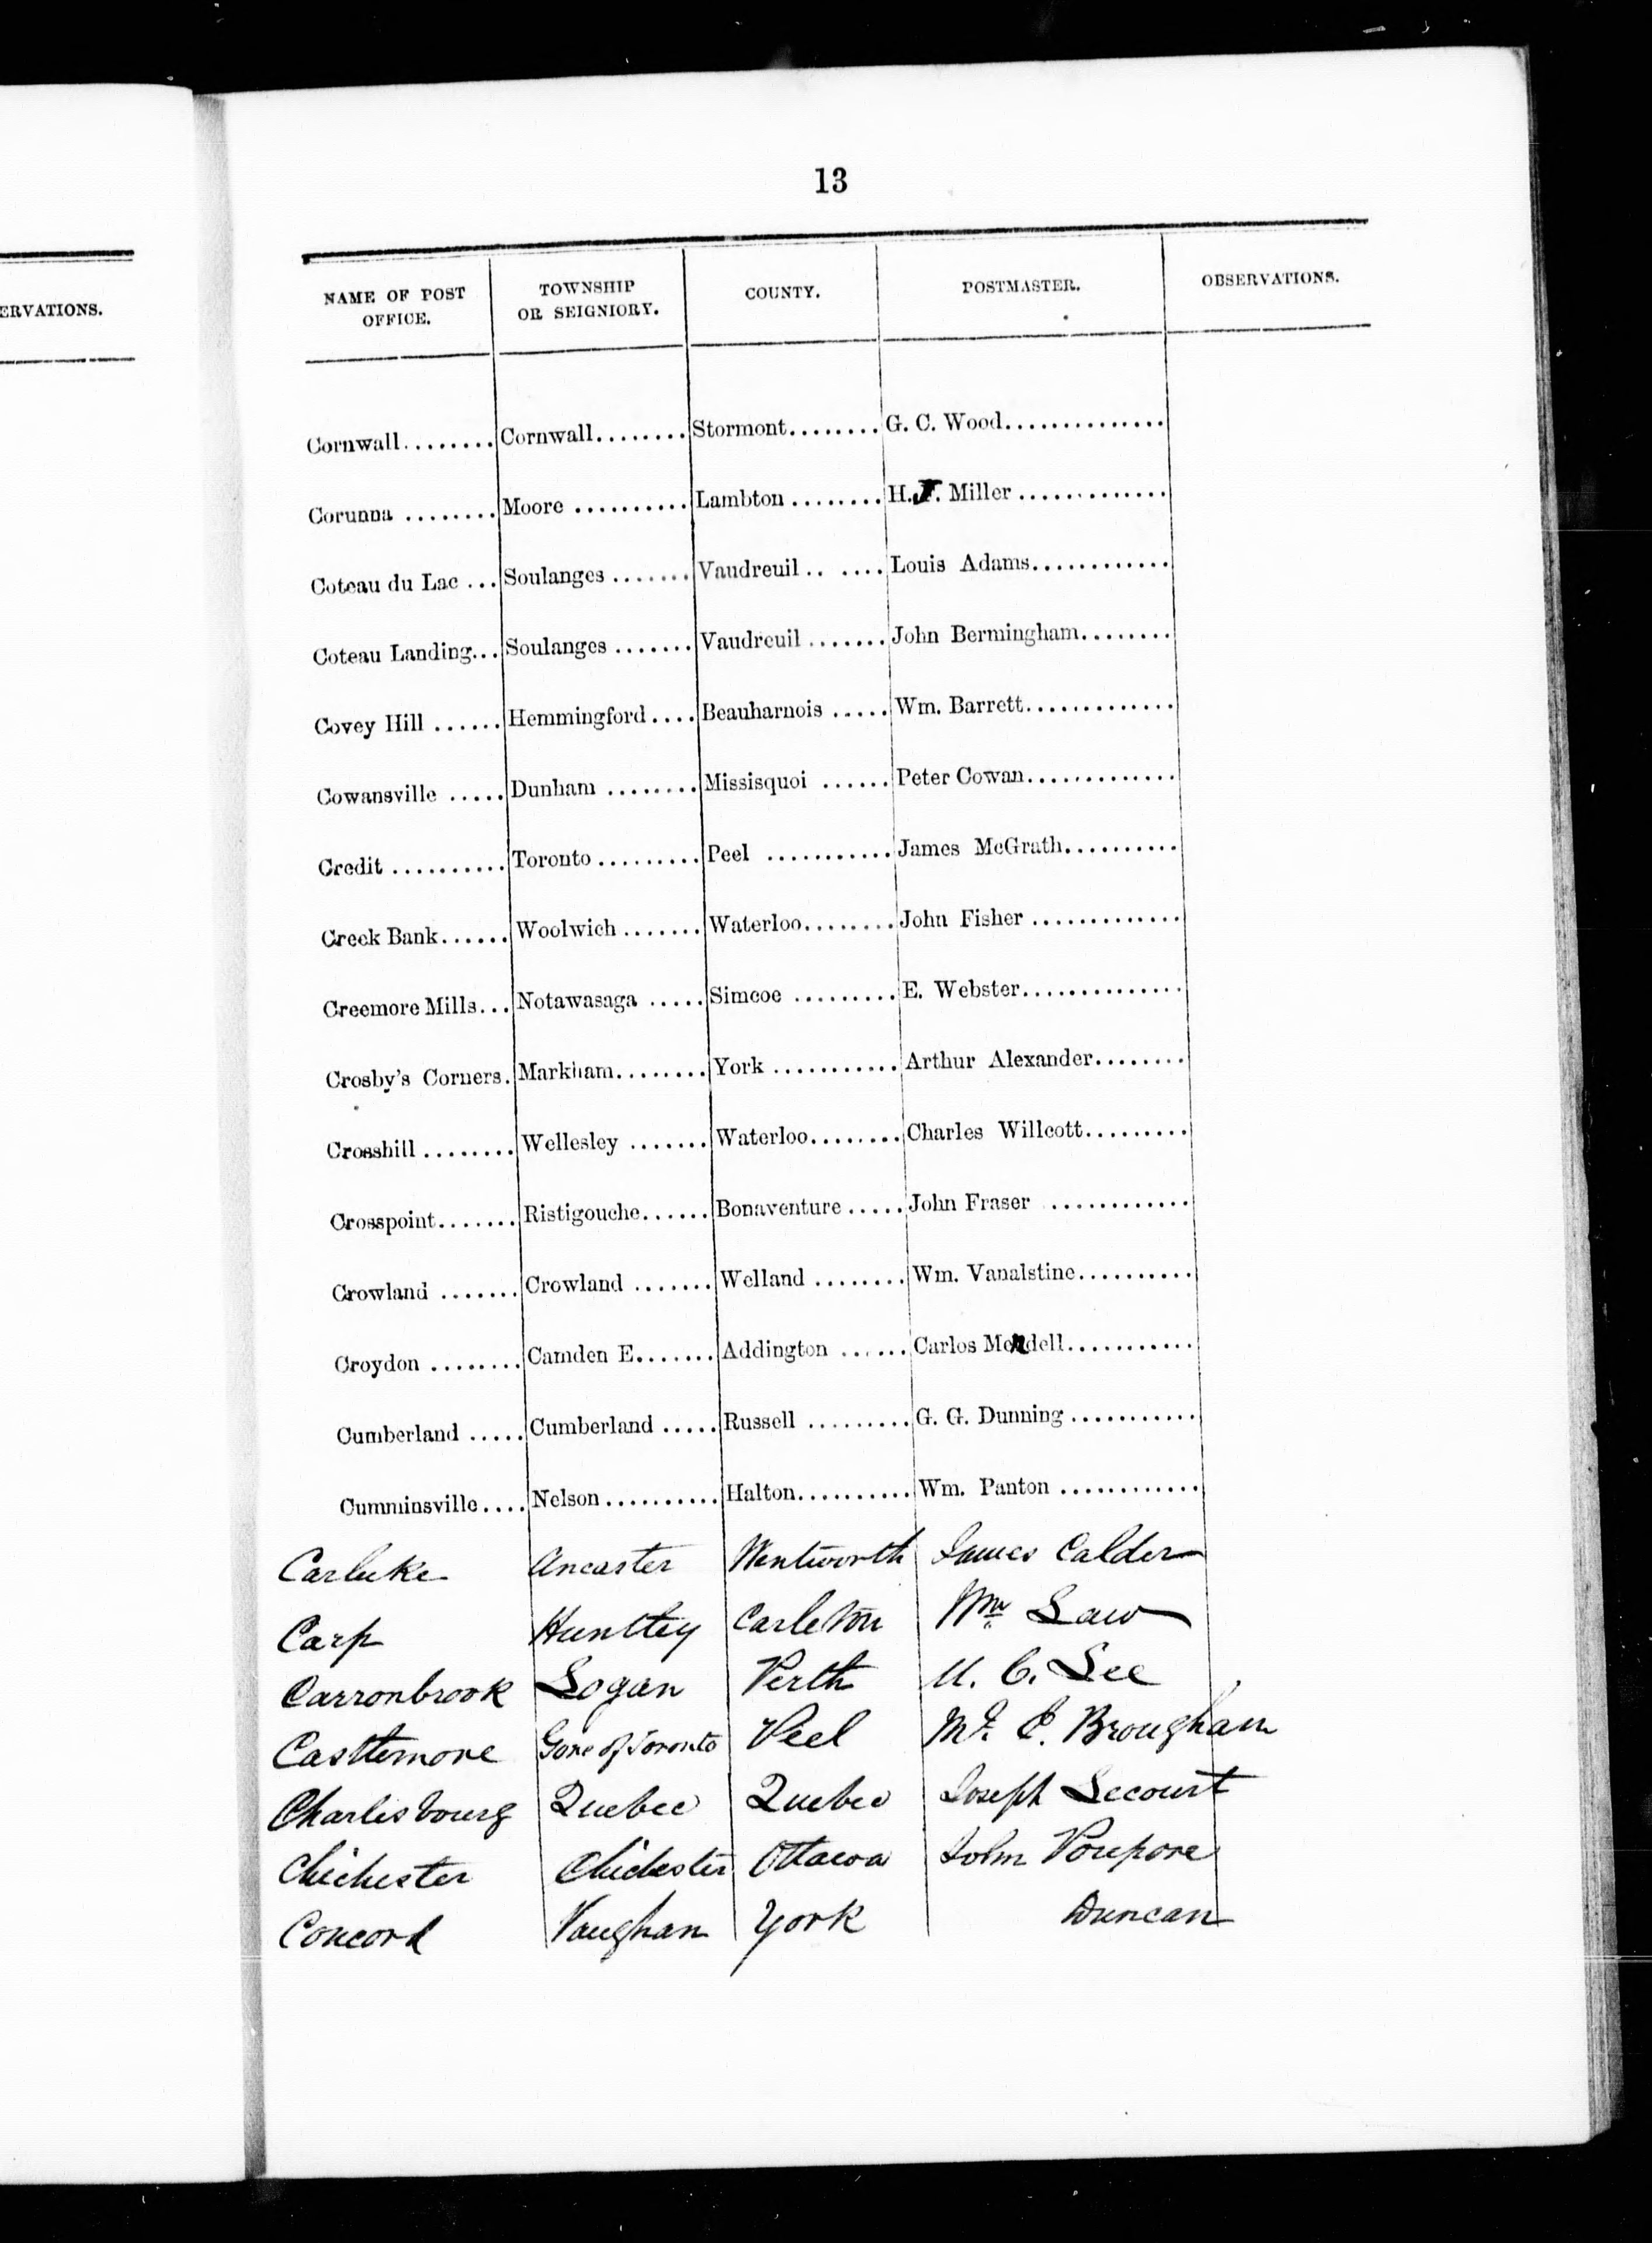 ERVATIONS.
13
NAME OF POST OFFICE. TOWNSHIP OR SEIGNIORY. COUNTY. POSTMASTER. OBSERVATIONS.
Cornwall........ Cornwall........ Stormont........ G. C. Wood..............
Corunna ........ Moore .......... Lambton ........ H. J. Miller .............
Coteau du Lac ... Soulanges ....... Vaudreuil.. .... Louis Adams............
Coteau Landing... Soulanges ....... Vaudreuil ....... John Bermingham........
Covey Hill ...... Hemmingford.... Beauharnois ..... Wm. Barrett.............
Cowansville ..... Dunham ........ Missisquoi ...... Peter Cowan.............
Credit .......... Toronto ......... Peel ........... James McGrath..........
Creek Bank...... Woolwich ....... Waterloo........ John Fisher .............
Creemore Mills... Notawasaga ..... Simcoe ......... E. Webster..............
Crosby's Corners. Markham........ York ........... Arthur Alexander........
Crosshill ........ Wellesley ....... Waterloo........ Charles Willcott.........
Crosspoint....... Ristigouche...... Bonaventure ..... John Fraser ............
Crowland ....... Crowland ....... Welland ........ Wm. Vanalstine..........
Croydon ........ Camden E....... Addington ...... Carlos Mendell...........
Cumberland ..... Cumberland ..... Russell ......... G. G. Dunning ...........
Cumminsville.... Nelson .......... Halton.......... Wm. Panton ............
Carluke Ancaster Wentworth James Calder
Carp Huntley Carleton Wm Law
Carronbrook Logan Perth U. C. Lee
Castlemore Gore of Toronto Peel Brougham
Charlesbourg Quebec Quebec Joseph Lecourt
Chichester Chichester Ottawa John Poupore
Concord Vaughan York Duncan